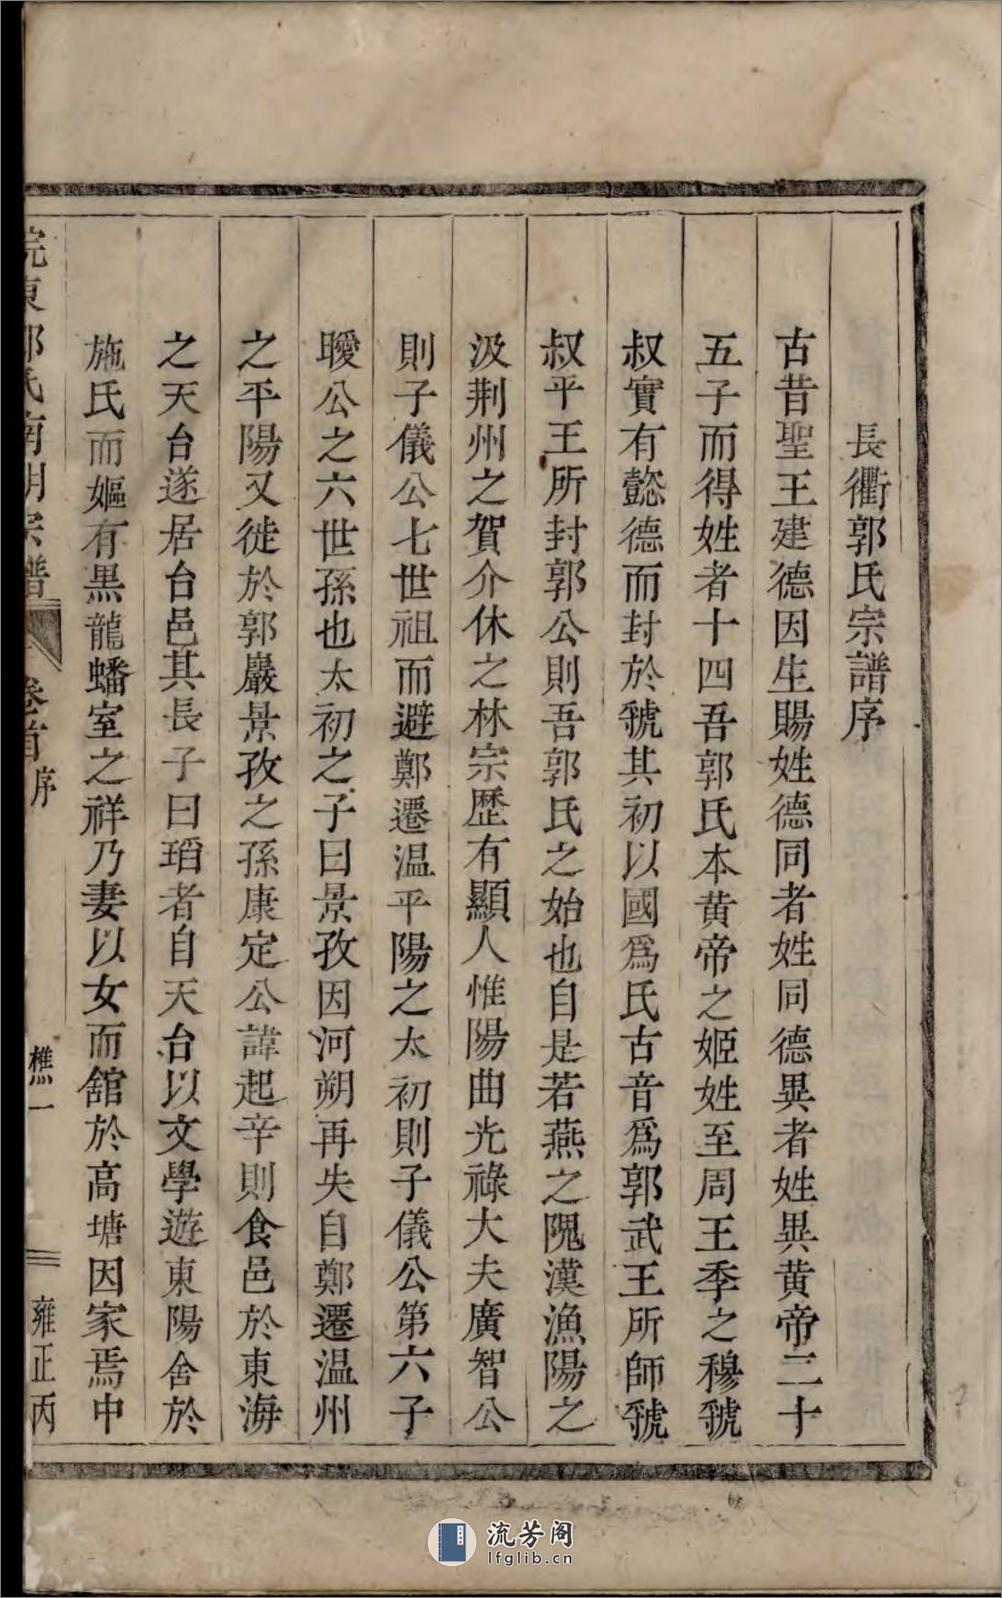 長衢郭氏宗譜序
古昔聖王建德因生賜姓德同者姓同德異者姓異黄帝二十
五子而得姓者十四吾郭氏本黄帝之姬姓至周王季之穆虢
叔實有懿德而封於虢其初以國爲氏古音爲郭武王所師虢
叔平王所封郭公則吾郭氏之始也自是若燕之隗漢漁陽之
汲荆州之賀介休之林宗歴有顯人惟陽曲光祿大夫廣智公
則子儀公七世祖而避鄭遷温平陽之太初則子儀公第六子
曖公之六世孫也太初之子曰景孜因河朔再失自鄭遷温州
之平陽又徙於郭巖景孜之孫康定公諱起辛則食邑於東海
之天台遂居台邑其長子曰瑫者自天台以文學遊東陽舍於
施氏而嫗有黒龍蟠室之祥乃妻以女而舘於高塘因家焉中
東郭氏南明宗譜 卷首 序 樵一 雍正丙
流芳阁
lfglib.cn